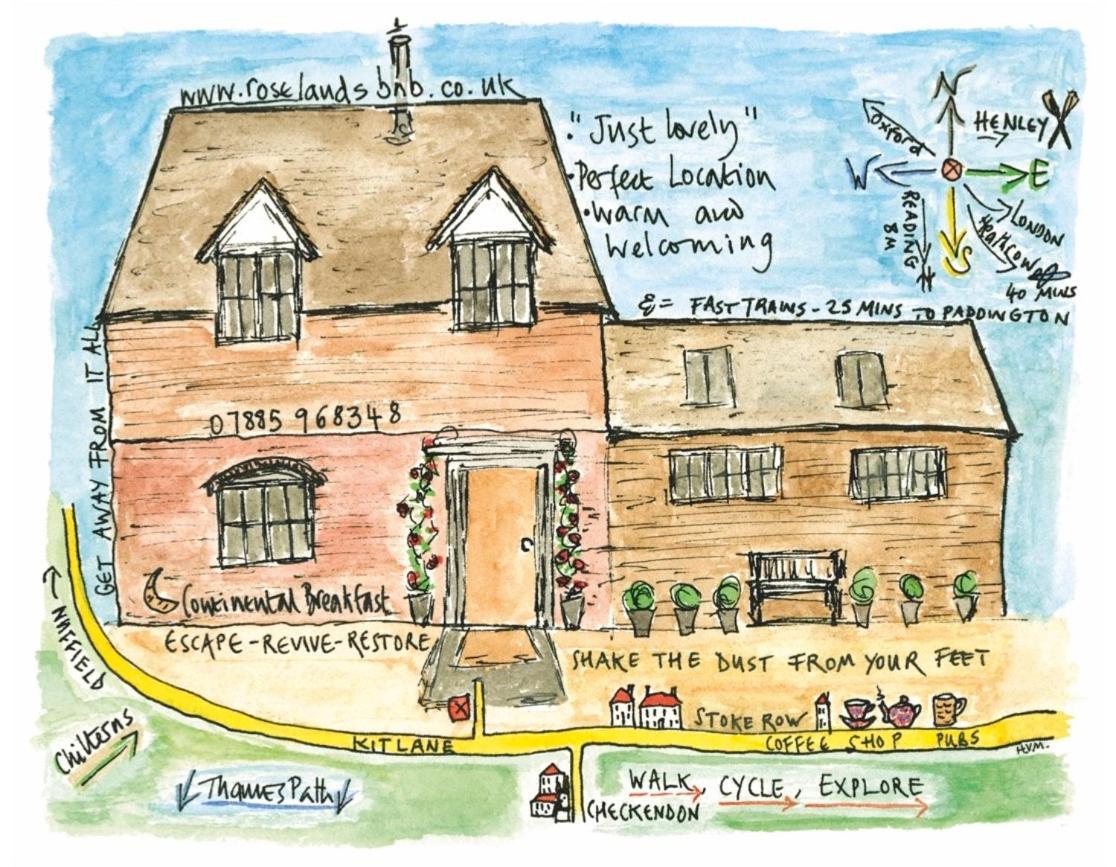 www.roselandsbnb.co.uk
"Just lovely"
•Perfect Location
•warm and
welcoming
N
Oxford
HENLEY
W
E
READING
8M
S
LONDON
Heathrow
40 MINS
= FAST TRAINS - 25 MINS TO PADDINGTON
GET AWAY FROM IT ALL
07885 968348
Continental Breakfast
ESCAPE - REVIVE - RESTORE
SHAKE THE DUST FROM YOUR FEET
NUFFIELD
STOKE ROW
KIT LANE
COFFEE SHOP PUBS
H.V.M.
Chilterns
Thames Path
CHECKENDON
WALK, CYCLE, EXPLORE